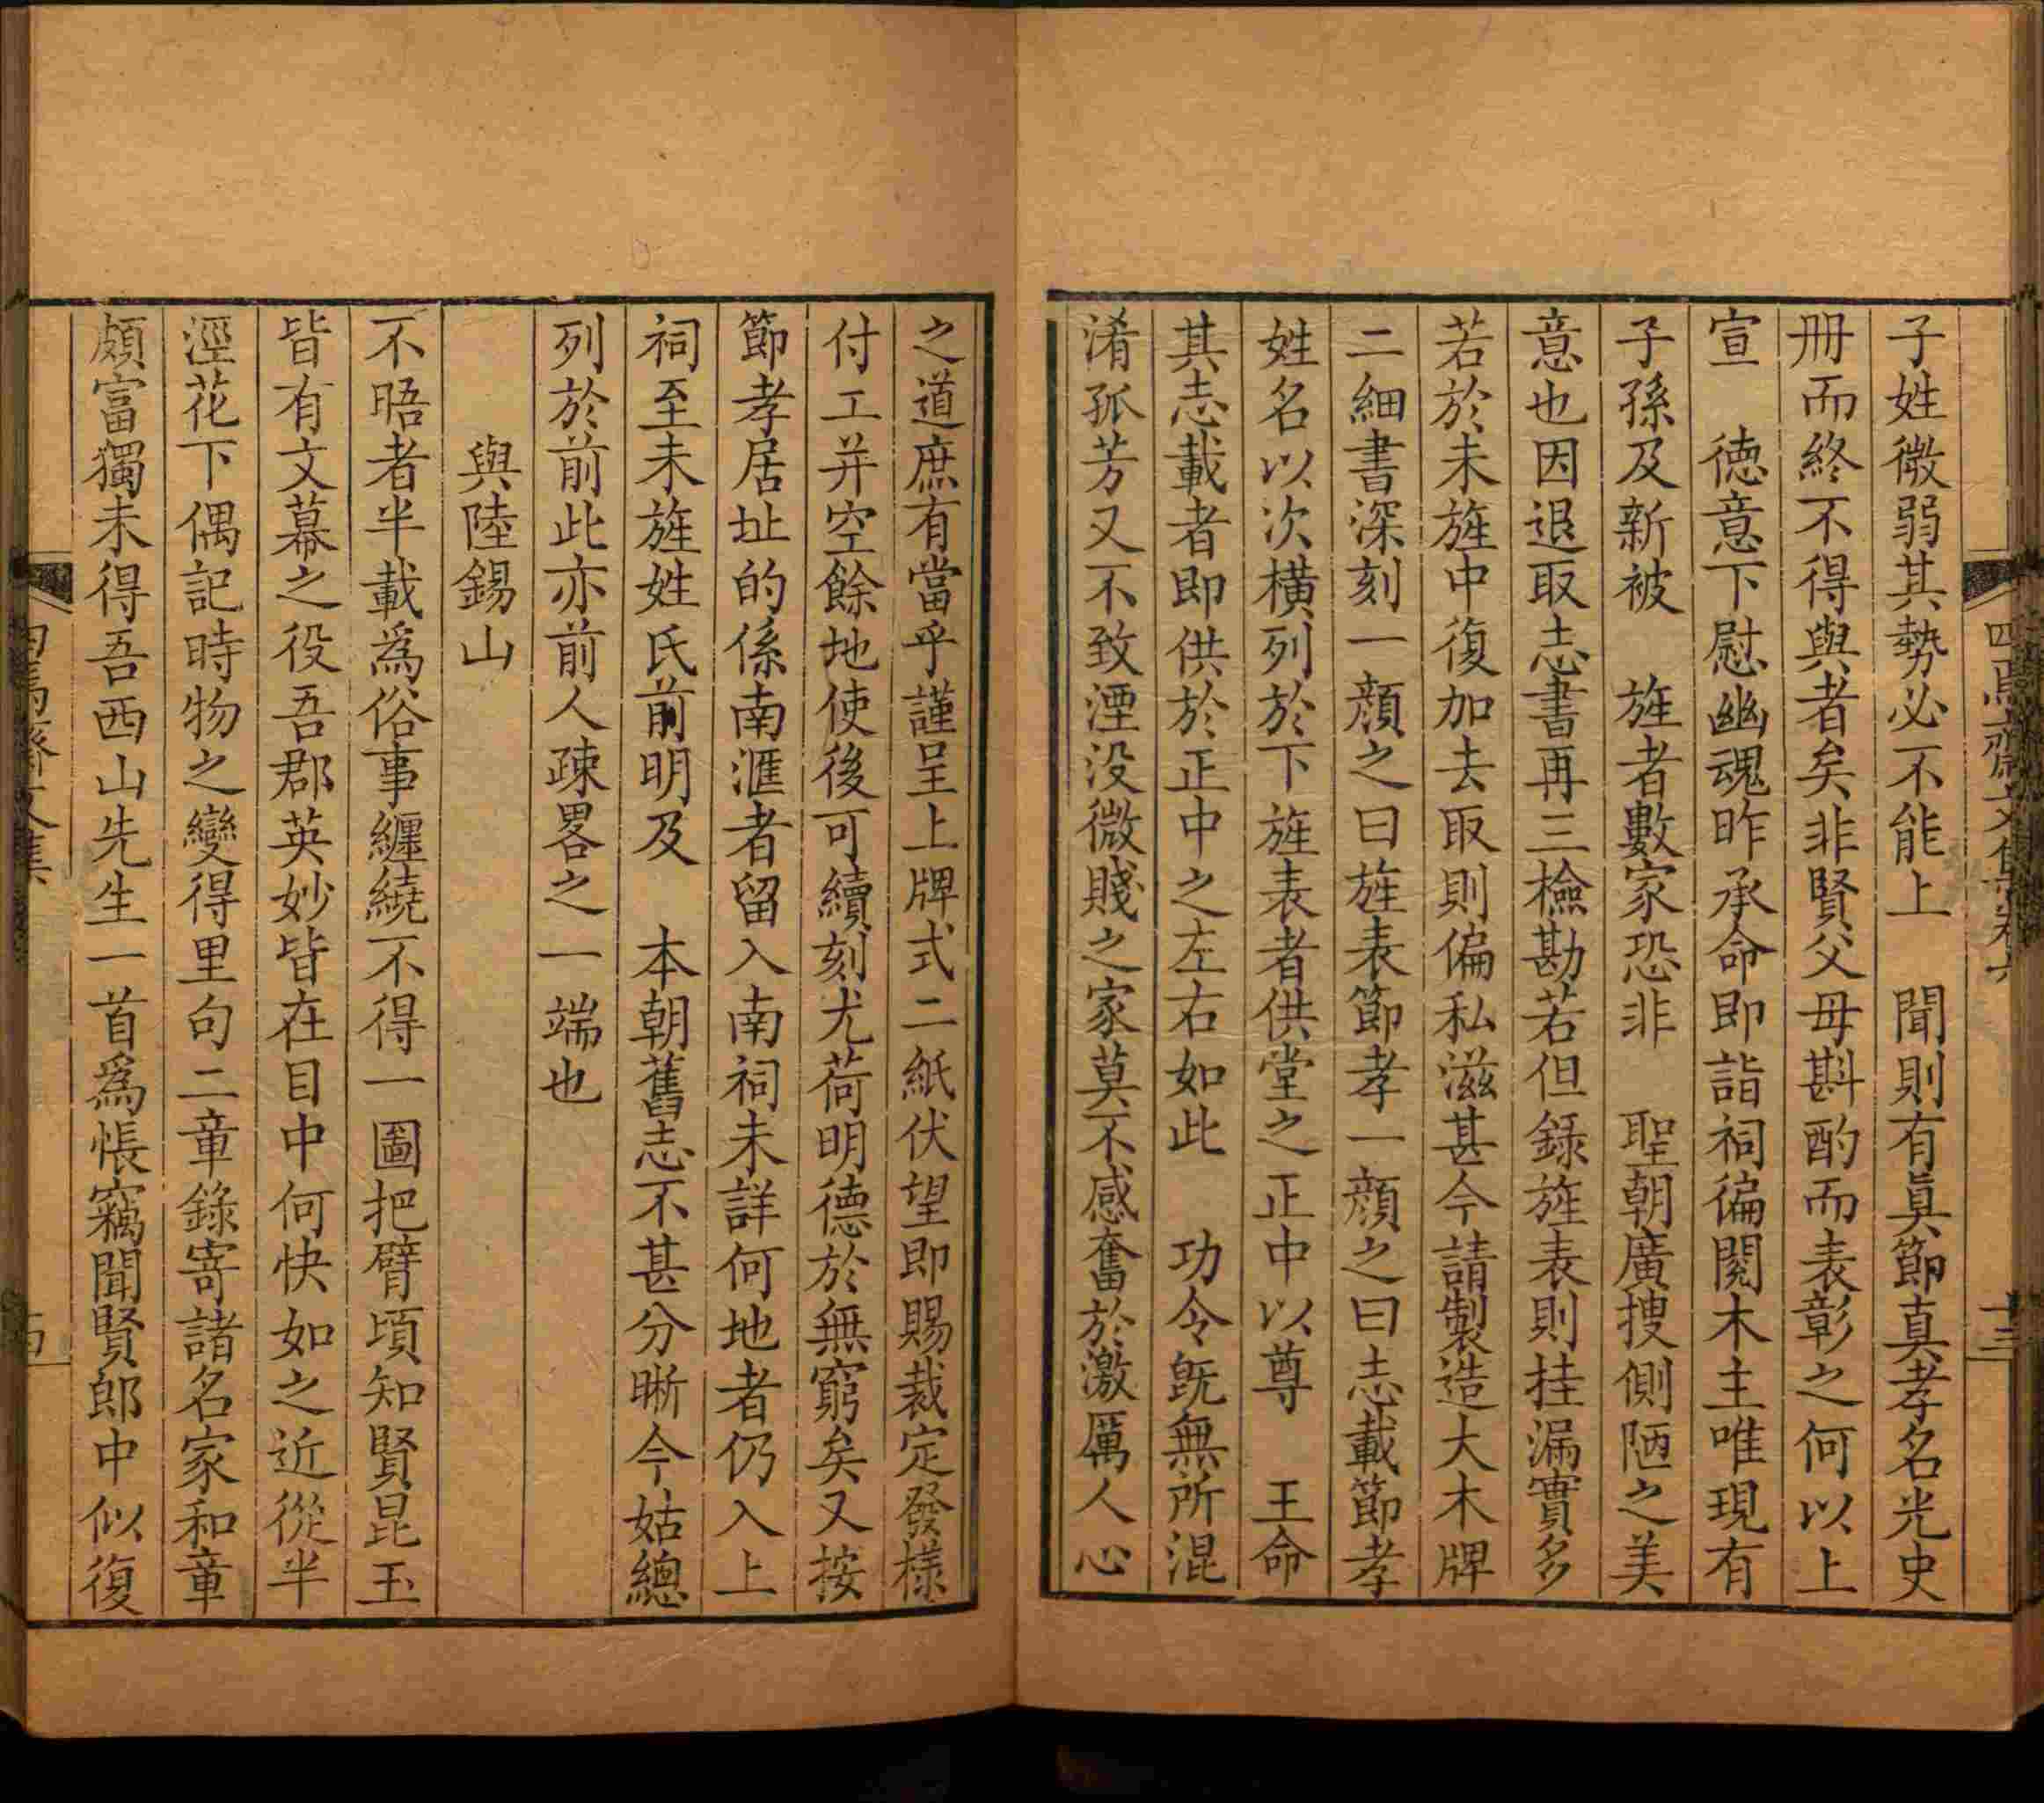 子姓微弱其勢必不能上　聞則有眞節真孝名光史
冊而終不得與者矣非賢父母斟酌而表彰之何以上
宣　德意下慰幽魂昨承命即詣祠徧閱木主唯現有
子孫及新被　旌者數家恐非　聖朝廣搜側陋之美
意也因退取志書再三檢勘若但錄旌表則挂漏實多
若於未旌中復加去取則偏私滋甚今請製造大木牌
二細書深刻一顏之曰旌表節孝一顏之曰志載節孝
姓名以次橫列於下旌表者供堂之正中以尊　王命
其志載者即供於正中之左右如此　功令旣無所混
淆孤芳又不致湮没微賤之家莫不感奮於激厲人心
之道庶有當乎謹呈上牌式二紙伏望即賜裁定發樣
付工并空餘地使後可續刻尤荷明德於無窮矣又按
節孝居址的係南滙者留入南祠未詳何地者仍入上
祠至未旌姓氏前明及　本朝舊志不甚分晰今姑總
列於前此亦前人疎畧之一端也
與陸錫山
不晤者半載爲俗事纏繞不得一圖把臂頃知賢昆玉
皆有文幕之役吾郡英妙皆在目中何快如之近從半
涇花下偶記時物之變得里句二章錄寄諸名家和章
頗富獨未得吾西山先生一首爲悵竊聞賢郎中似復
四焉齋文集卷六
十三